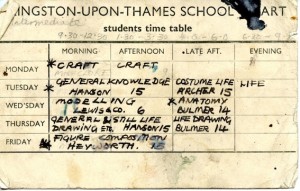 INGSTON-UPON-THAMES SCHOOL ART
students time table
Intermediate
9-30-12-30
MORNING AFTERNOON LATE AFT. EVENING
MONDAY CRAFT CRAFT
TUESDAY GENERAL KNOWLEDGE COSTUME LIFE LIFE
HANSON 15 ARCHER 15
WED'SDAY MODELLING ANATOMY
LEWIS & CO. 6 BULMER 14
THURSDAY GENERAL & STILL LIFE LIFE DRAWING
DRAWING ETC. HANSON 15 BULMER 14
FRIDAY FIGURE COMPOSITION
HEYWORTH. 15